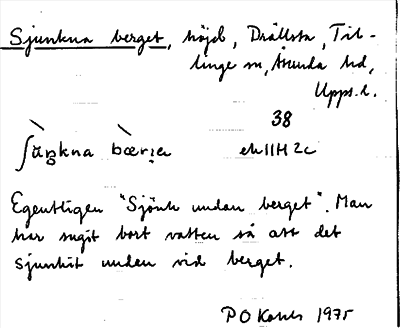 Sjunkna berget, höjd, Drällsta, Til-
linge sn, Åsunda hd,
Upps. l.
38
ek 11H 2c
Egentligen "Sjönk undan berget". Man
har sugit bort vatten så att det
sjunkit undan vid berget.
P O 1975